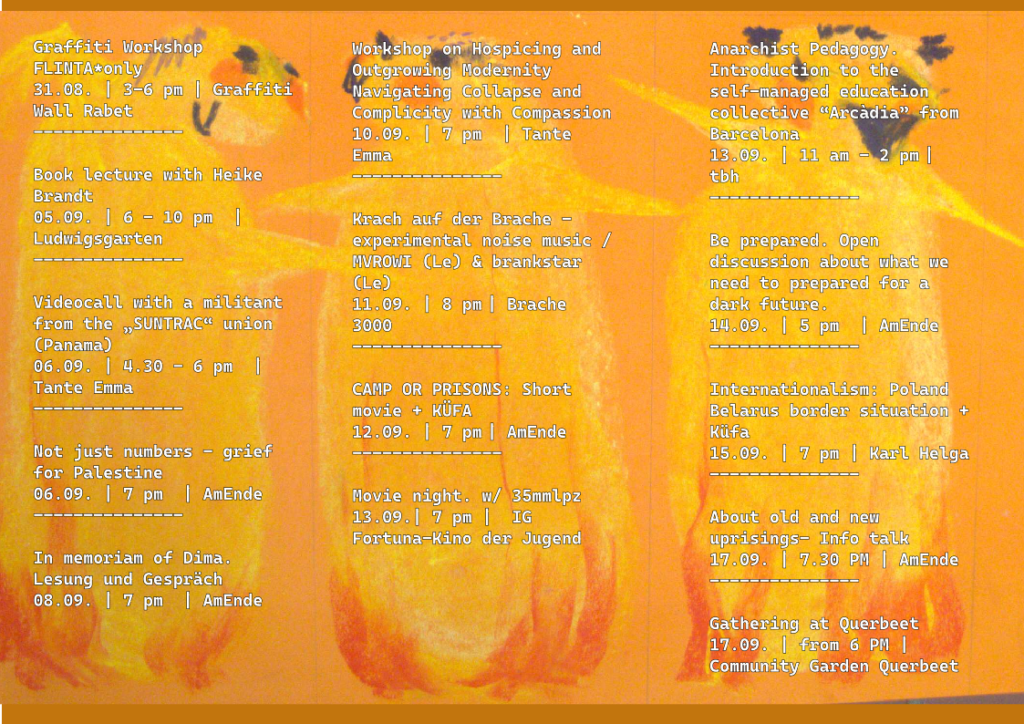 Graffiti Workshop
FLINTA*only
31.08. | 3-6 pm | Graffiti
Wall Rabet
---------------
Book lecture with Heike
Brandt
05.09. | 6 - 10 pm |
Ludwigsgarten
---------------
Videocall with a militant
from the „SUNTRAC“ union
(Panama)
06.09. | 4.30 - 6 pm |
Tante Emma
---------------
Not just numbers - grief
for Palestine
06.09. | 7 pm | AmEnde
---------------
In memoriam of Dima.
Lesung und Gespräch
08.09. | 7 pm | AmEnde
Workshop on Hospicing and
Outgrowing Modernity
Navigating Collapse and
Complicity with Compassion
10.09. | 7 pm | Tante
Emma
---------------
Krach auf der Brache -
experimental noise music /
MVROWI (Le) & brankstar
(Le)
11.09. | 8 pm | Brache
3000
---------------
CAMP OR PRISONS: Short
movie + KÜFA
12.09. | 7 pm | AmEnde
---------------
Movie night. w/ 35mmlpz
13.09.| 7 pm | IG
Fortuna-Kino der Jugend
Anarchist Pedagogy.
Introduction to the
self-managed education
collective “Arcàdia” from
Barcelona
13.09. | 11 am - 2 pm |
tbh
---------------
Be prepared. Open
discussion about what we
need to prepared for a
dark future.
14.09. | 5 pm | AmEnde
---------------
Internationalism: Poland
Belarus border situation +
Küfa
15.09. | 7 pm | Karl Helga
---------------
About old and new
uprisings- Info talk
17.09. | 7.30 PM | AmEnde
---------------
Gathering at Querbeet
17.09. | from 6 PM |
Community Garden Querbeet